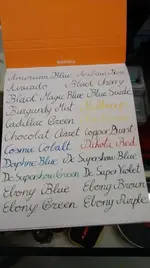 RHODIA
American Blue
Avocado Black Cherry
Black Magic Blue Blue Suede
Burgundy Mist
Cadillac Green
Chocolat Claret Copper Burst
Cosmic Cobalt Dakota Red
Daphne Blue De Supershow Blue
De Supershow Green De Super Violet
Ebony Blue Ebony Brown
Ebony Green Ebony Purple